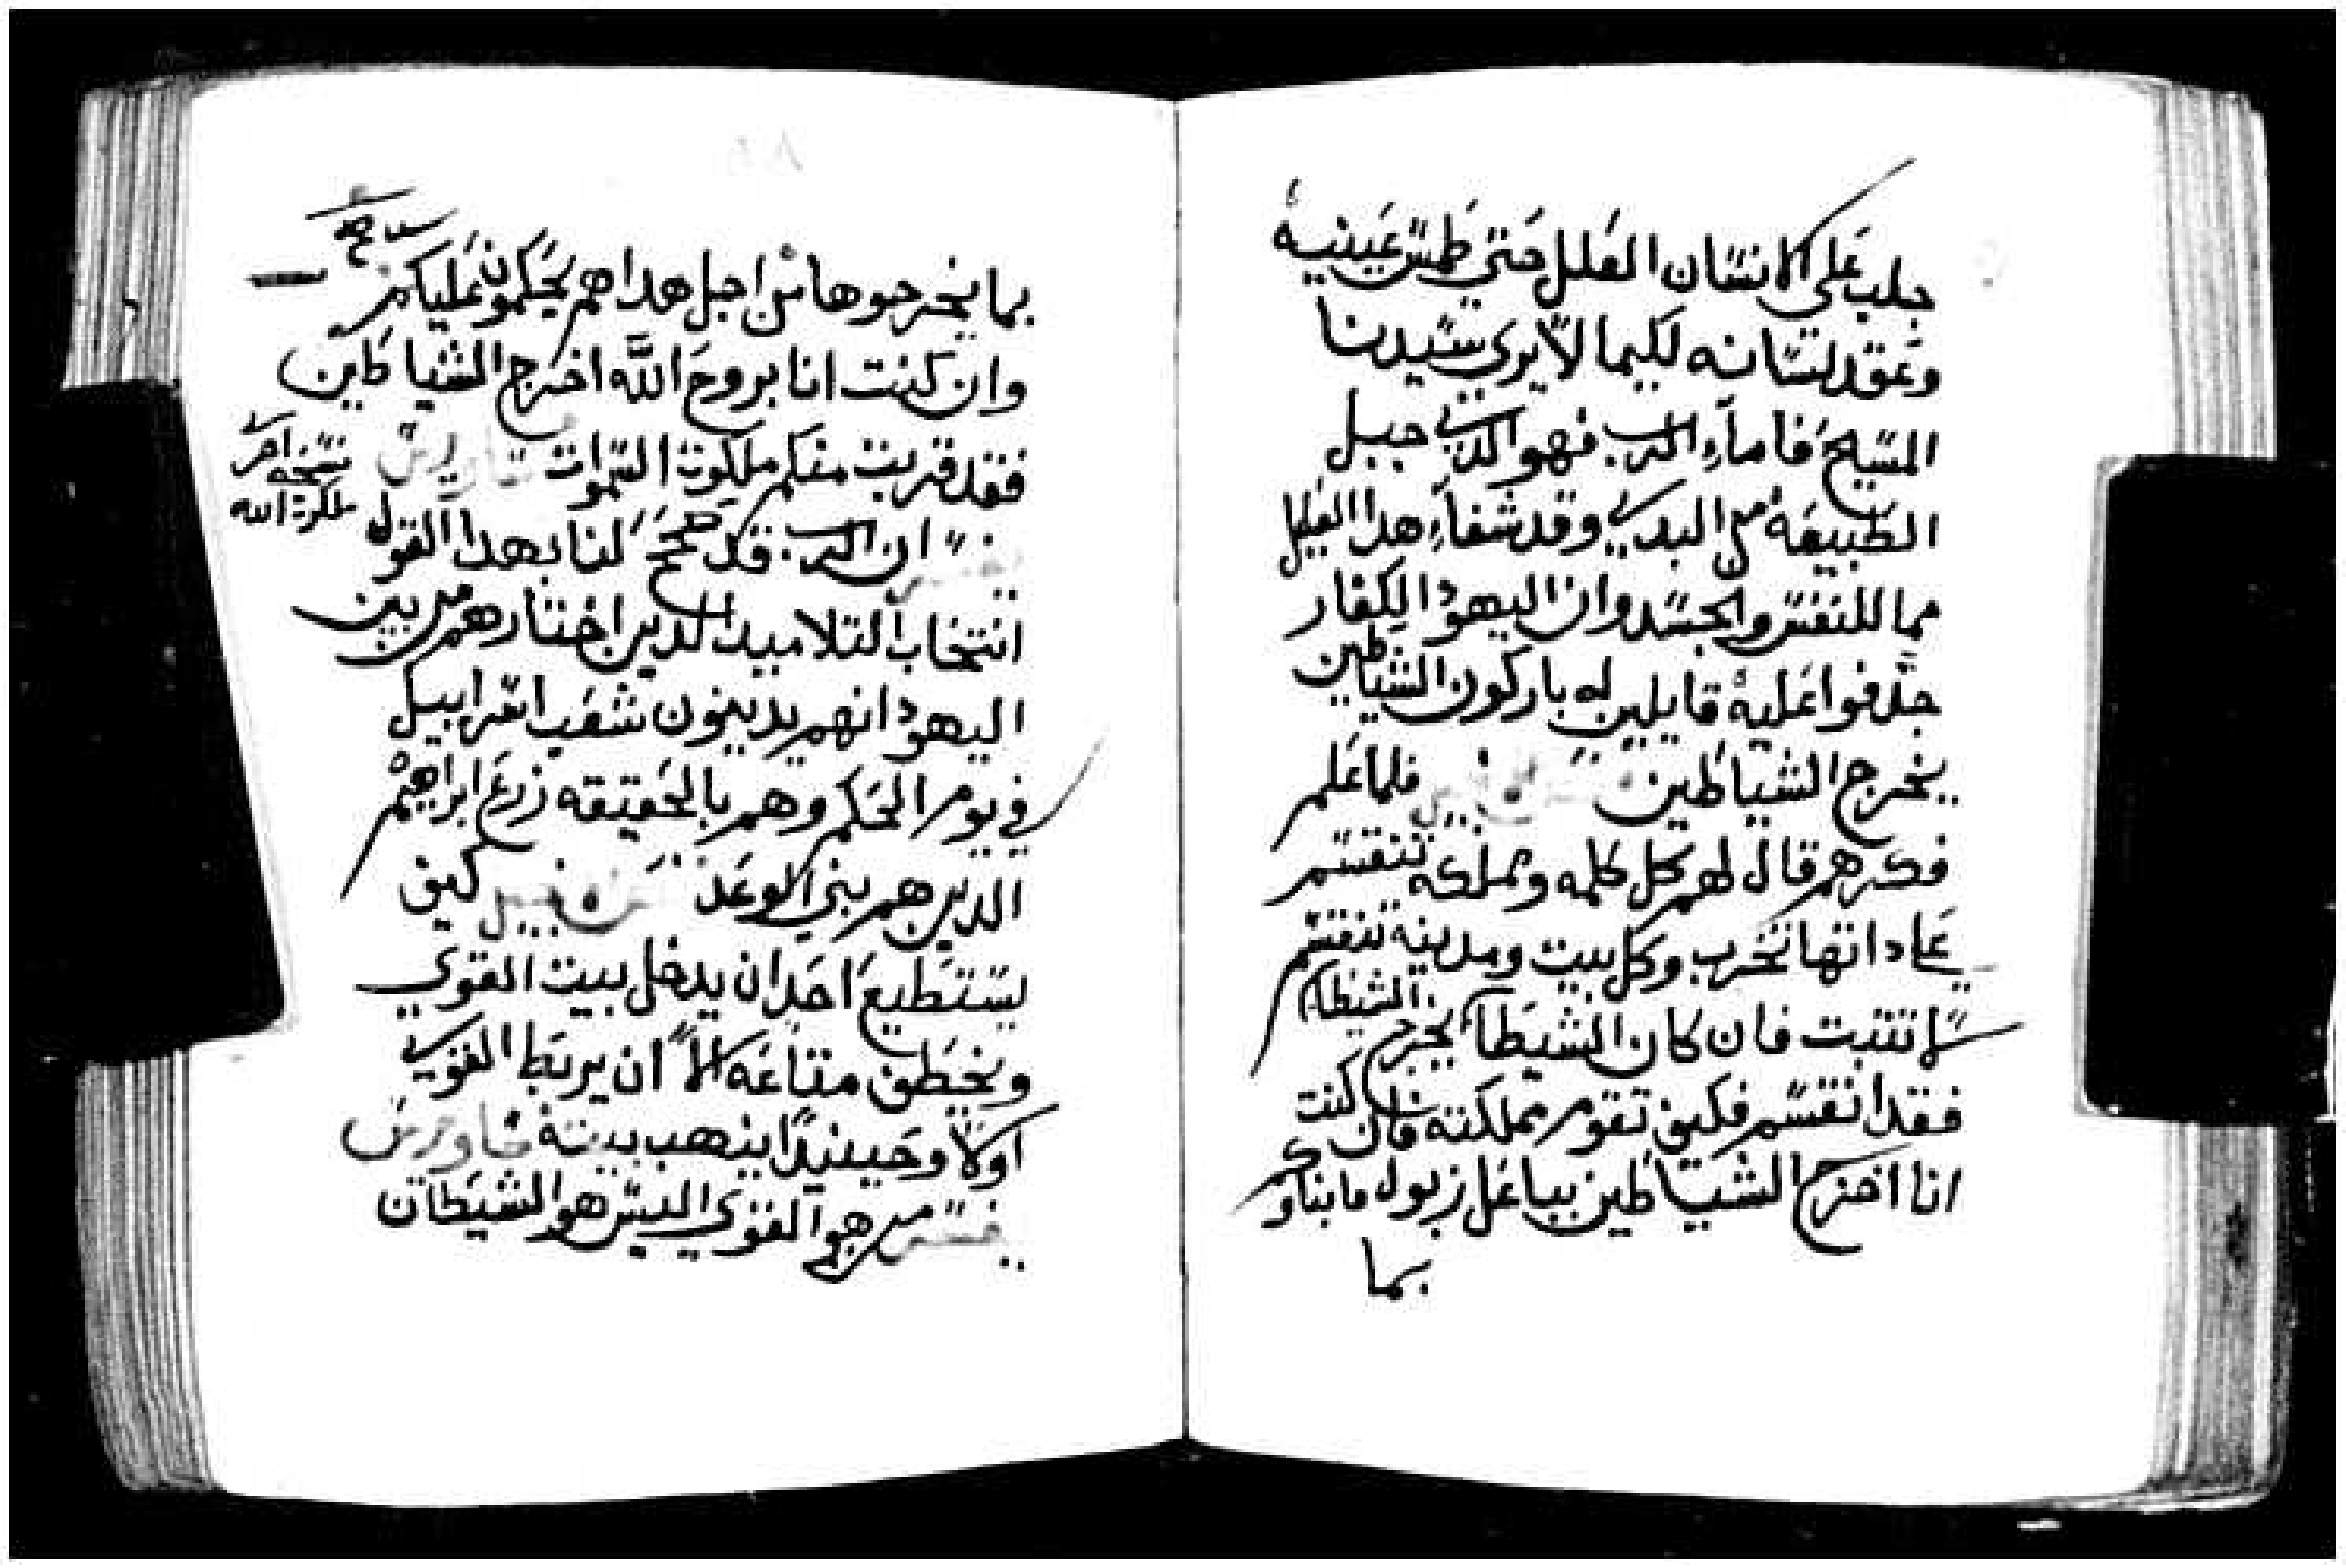 جلب على الانسان العلل حتي طمس عينيه
وعقد لسانه لكيما لا يري سيدنا
المسيح فاما الرب فهو الدي جبل
الطبيعه من البدي وقد شفا هدا العليل
مما للنفس والجسد وان اليهود الكفار
جدفوا عليه قايلين له باركون الشياطين
يخرج الشياطين فلما علم
فكرهم قال لهم كل كلمه ومملكه تنقسم
علي داتها تخرب وكل بيت ومدينه تنقسم
لا تثبت فان كان الشيطان يخرج الشيطان
فقد انقسم فكيف تقوم مملكته فان كنت
انا اخرج الشياطين بباعل زبول فابناوكم
بما
بما يخرجوها من اجل هدا هم يحكمون عليكم
وان كنت انا بروح الله اخرج الشياطين
فقد قربت منكم ملكوت السموات
نسخه اخر
ملكوة الله
ان الرب قد صحح لنا بهدا القول
انتخاب التلاميد الدين اختارهم من بين
اليهود انهم يدينون شعب اسراييل
في يوم الحكم وهم بالحقيقه زرع ابراهيم
الدين هم بني الوعد كيف
يستطيع احد ان يدخل بيت القوي
ويخطف متاعه الا ان يربط القوي
اولا وحينيدا ينهب بيته
من هو القوي اليس هو الشيطان